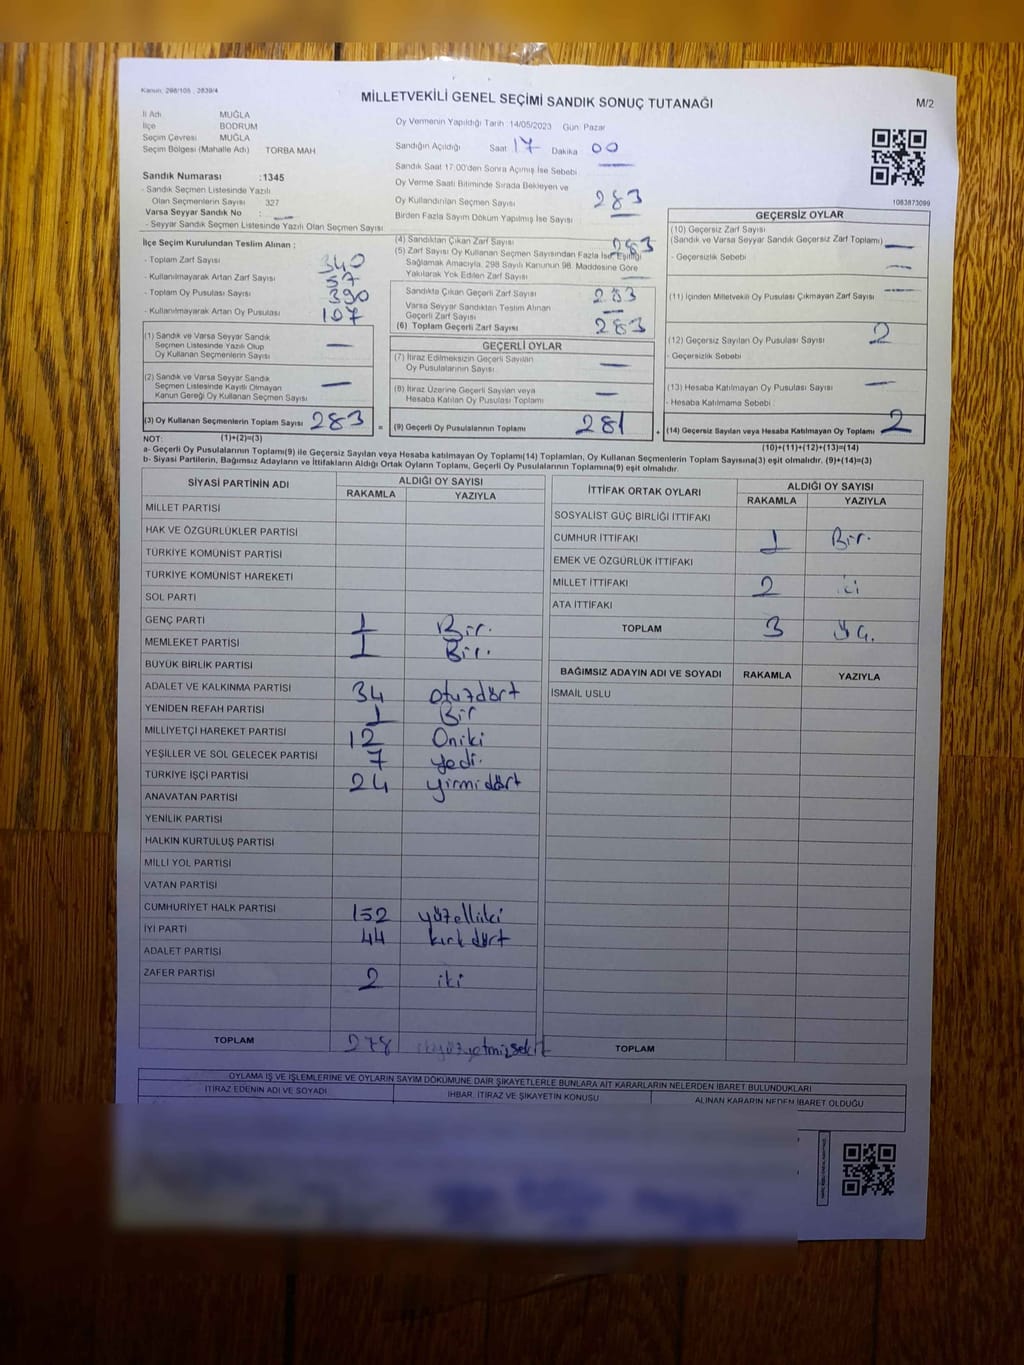 Kanun: 298/105 , 2839/4
MİLLETVEKİLİ GENEL SEÇİMİ SANDIK SONUÇ TUTANAĞI
M/2
İl Adı MUĞLA
İlçe BODRUM
Seçim Çevresi MUĞLA
Seçim Bölgesi (Mahalle Adı) TORBA MAH.
Oy Vermenin Yapıldığı Tarih :14/05/2023 Gün: Pazar
Sandığın Açıldığı Saat 17 Dakika 00
Sandık Saat 17:00'den Sonra Açımış İse Sebebi —
Oy Verme Saati Bitiminde Sırada Bekleyen ve
Oy Kullandırılan Seçmen Sayısı 283
Birden Fazla Sayım Döküm Yapılmış İse Sayısı —
1083873099
Sandık Numarası :1345
- Sandık Seçmen Listesinde Yazılı
Olan Seçmenlerin Sayısı 327
Varsa Seyyar Sandık No : —
- Seyyar Sandık Seçmen Listesinde Yazılı Olan Seçmen Sayısı
İlçe Seçim Kurulundan Teslim Alınan :
- Toplam Zarf Sayısı 340
- Kullanılmayarak Artan Zarf Sayısı 57
- Toplam Oy Pusulası Sayısı 390
- Kullanılmayarak Artan Oy Pusulası 107
(1) Sandık ve Varsa Seyyar Sandık
Seçmen Listesinde Yazılı Olup
Oy Kullanan Seçmenlerin Sayısı —
(2) Sandık ve Varsa Seyyar Sandık
Seçmen Listesinde Kayıtlı Olmayan
Kanun Gereği Oy Kullanan Seçmen Sayısı —
(3) Oy Kullanan Seçmenlerin Toplam Sayısı 283
(4) Sandıktan Çıkan Zarf Sayısı 283
(5) Zarf Sayısı Oy Kullanan Seçmen Sayısından Fazla İse Eşitliği
Sağlamak Amacıyla, 298 Sayılı Kanunun 98. Maddesine Göre
Yakılarak Yok Edilen Zarf Sayısı —
Sandıkta Çıkan Geçerli Zarf Sayısı 283
Varsa Seyyar Sandıktan Teslim Alınan
Geçerli Zarf Sayısı —
(6) Toplam Geçerli Zarf Sayısı 283
GEÇERLİ OYLAR
(7) İtiraz Edilmeksizin Geçerli Sayılan
Oy Pusulalarının Sayısı —
(8) İtiraz Üzerine Geçerli Sayılan veya
Hesaba Katılan Oy Pusulası Toplamı —
= (9) Geçerli Oy Pusulalarının Toplamı 281
GEÇERSİZ OYLAR
(10) Geçersiz Zarf Sayısı
(Sandık ve Varsa Seyyar Sandık Geçersiz Zarf Toplamı) —
- Geçersizlik Sebebi —
(11) İçinden Milletvekili Oy Pusulası Çıkmayan Zarf Sayısı —
(12) Geçersiz Sayılan Oy Pusulası Sayısı 2
- Geçersizlik Sebebi
(13) Hesaba Katılmayan Oy Pusulası Sayısı —
- Hesaba Katılmama Sebebi
+ (14) Geçersiz Sayılan veya Hesaba Katılmayan Oy Toplamı 2
NOT: (1)+(2)=(3)
(10)+(11)+(12)+(13)=(14)
a- Geçerli Oy Pusulalarının Toplamı(9) ile Geçersiz Sayılan veya Hesaba katılmayan Oy Toplamı(14) Toplamları, Oy Kullanan Seçmenlerin Toplam Sayısına(3) eşit olmalıdır. (9)+(14)=(3)
b- Siyasi Partilerin, Bağımsız Adayların ve İttifakların Aldığı Ortak Oyların Toplamı, Geçerli Oy Pusulalarının Toplamına(9) eşit olmalıdır.
SİYASİ PARTİNİN ADI ALDIĞI OY SAYISI
RAKAMLA YAZIYLA
MİLLET PARTİSİ
HAK VE ÖZGÜRLÜKLER PARTİSİ
TÜRKİYE KOMÜNİST PARTİSİ
TÜRKİYE KOMÜNİST HAREKETİ
SOL PARTİ
GENÇ PARTİ 1 Bir.
MEMLEKET PARTİSİ 1 Bir.
BÜYÜK BİRLİK PARTİSİ
ADALET VE KALKINMA PARTİSİ 34 otuzdört
YENİDEN REFAH PARTİSİ 1 Bir
MİLLİYETÇİ HAREKET PARTİSİ 12 Oniki
YEŞİLLER VE SOL GELECEK PARTİSİ 7 yedi.
TÜRKİYE İŞÇİ PARTİSİ 24 yirmidört
ANAVATAN PARTİSİ
YENİLİK PARTİSİ
HALKIN KURTULUŞ PARTİSİ
MİLLİ YOL PARTİSİ
VATAN PARTİSİ
CUMHURİYET HALK PARTİSİ 152 yüzelliiki
İYİ PARTİ 44 kırkdört
ADALET PARTİSİ
ZAFER PARTİSİ 2 iki
TOPLAM 278 ikiyüzyetmişsekiz
İTTİFAK ORTAK OYLARI ALDIĞI OY SAYISI
RAKAMLA YAZIYLA
SOSYALİST GÜÇ BİRLİĞİ İTTİFAKI
CUMHUR İTTİFAKI 1 Bir.
EMEK VE ÖZGÜRLÜK İTTİFAKI
MİLLET İTTİFAKI 2 iki
ATA İTTİFAKI
TOPLAM 3 üç.
BAĞIMSIZ ADAYIN ADI VE SOYADI RAKAMLA YAZIYLA
İSMAİL USLU
TOPLAM
OYLAMA İŞ VE İŞLEMLERİNE VE OYLARIN SAYIM DÖKÜMÜNE DAİR ŞİKAYETLERLE BUNLARA AİT KARARLARIN NELERDEN İBARET BULUNDUKLARI
İTİRAZ EDENİN ADI VE SOYADI İHBAR, İTİRAZ VE ŞİKAYETİN KONUSU ALINAN KARARIN NEDEN İBARET OLDUĞU